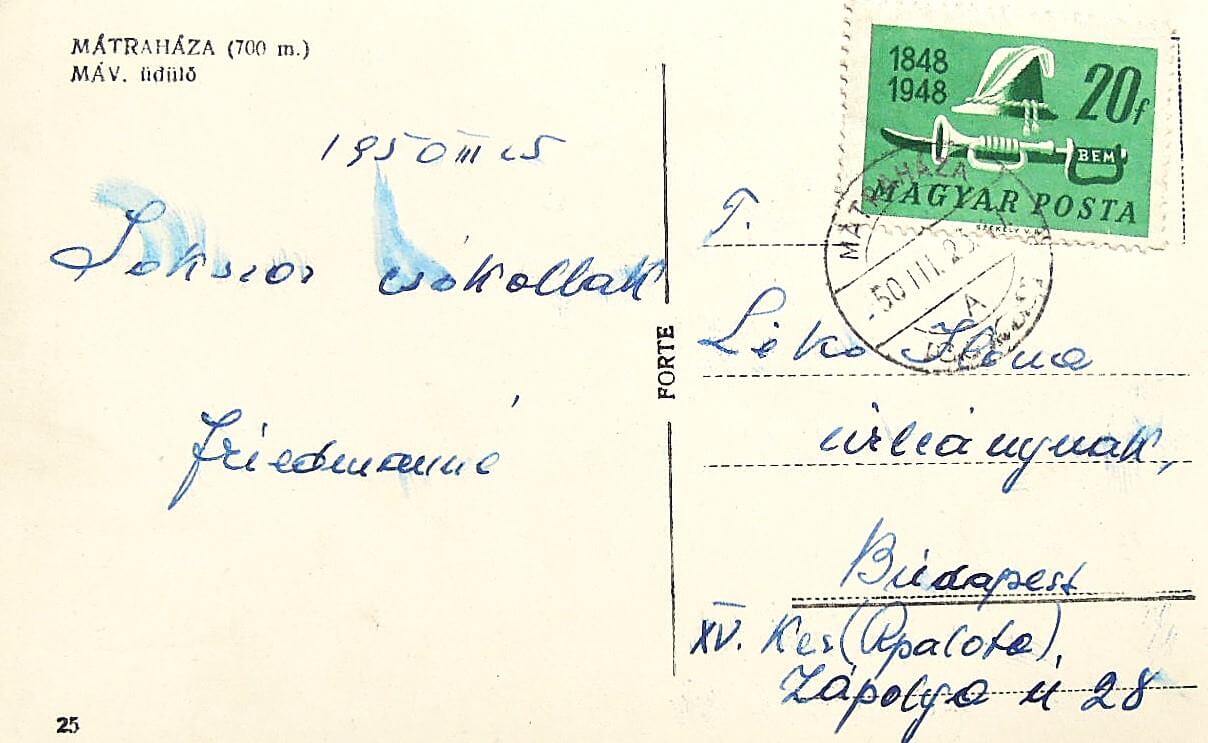 MÁTRAHÁZA (700 m.)
MÁV. üdülő
1950 III 25
Sokszor csókollak
Friedmanné
25
FORTE
1848
1948
20f
BEM
MAGYAR POSTA
MÁTRAHÁZA
50 III. 25
A
T.
Lékó Ilona
úrleánynak,
Budapest
XV. Ker (Rpalota),
Zápolya u 28